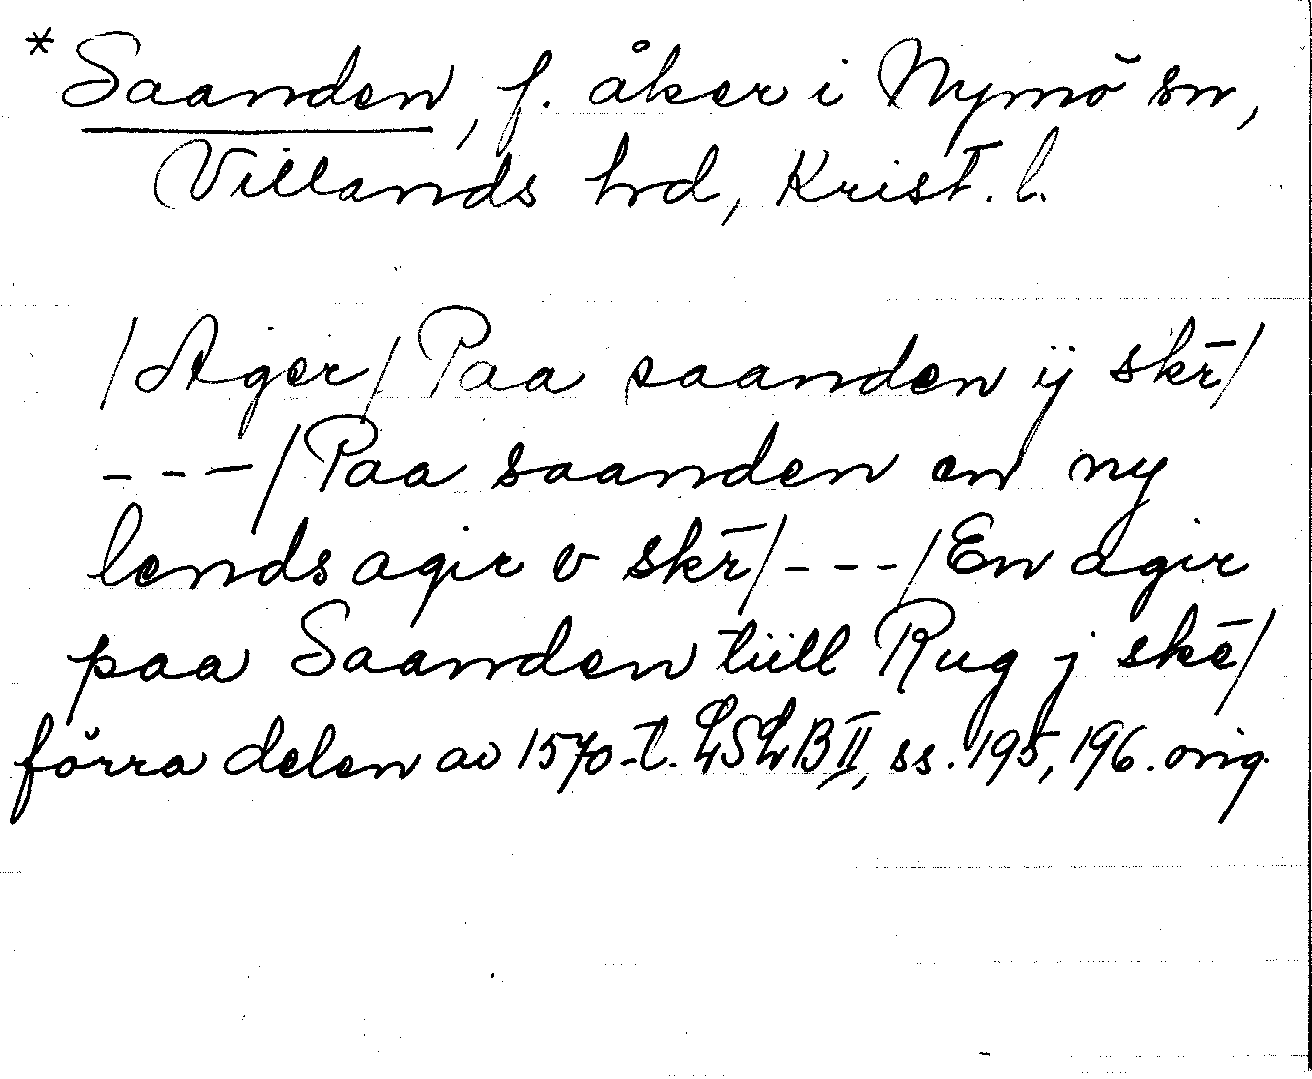 *Saanden, f. åker i Nymö sn,
Villands hrd, Krist. l.
/Ager/ Paa saanden ij skr̄/
---/Paa saanden en ny
lends agir v skr̄/---/En agir
paa Saanden tiill Rug j skē/
förra delen av 1570-t. LSLB II, ss. 195, 196. orig.